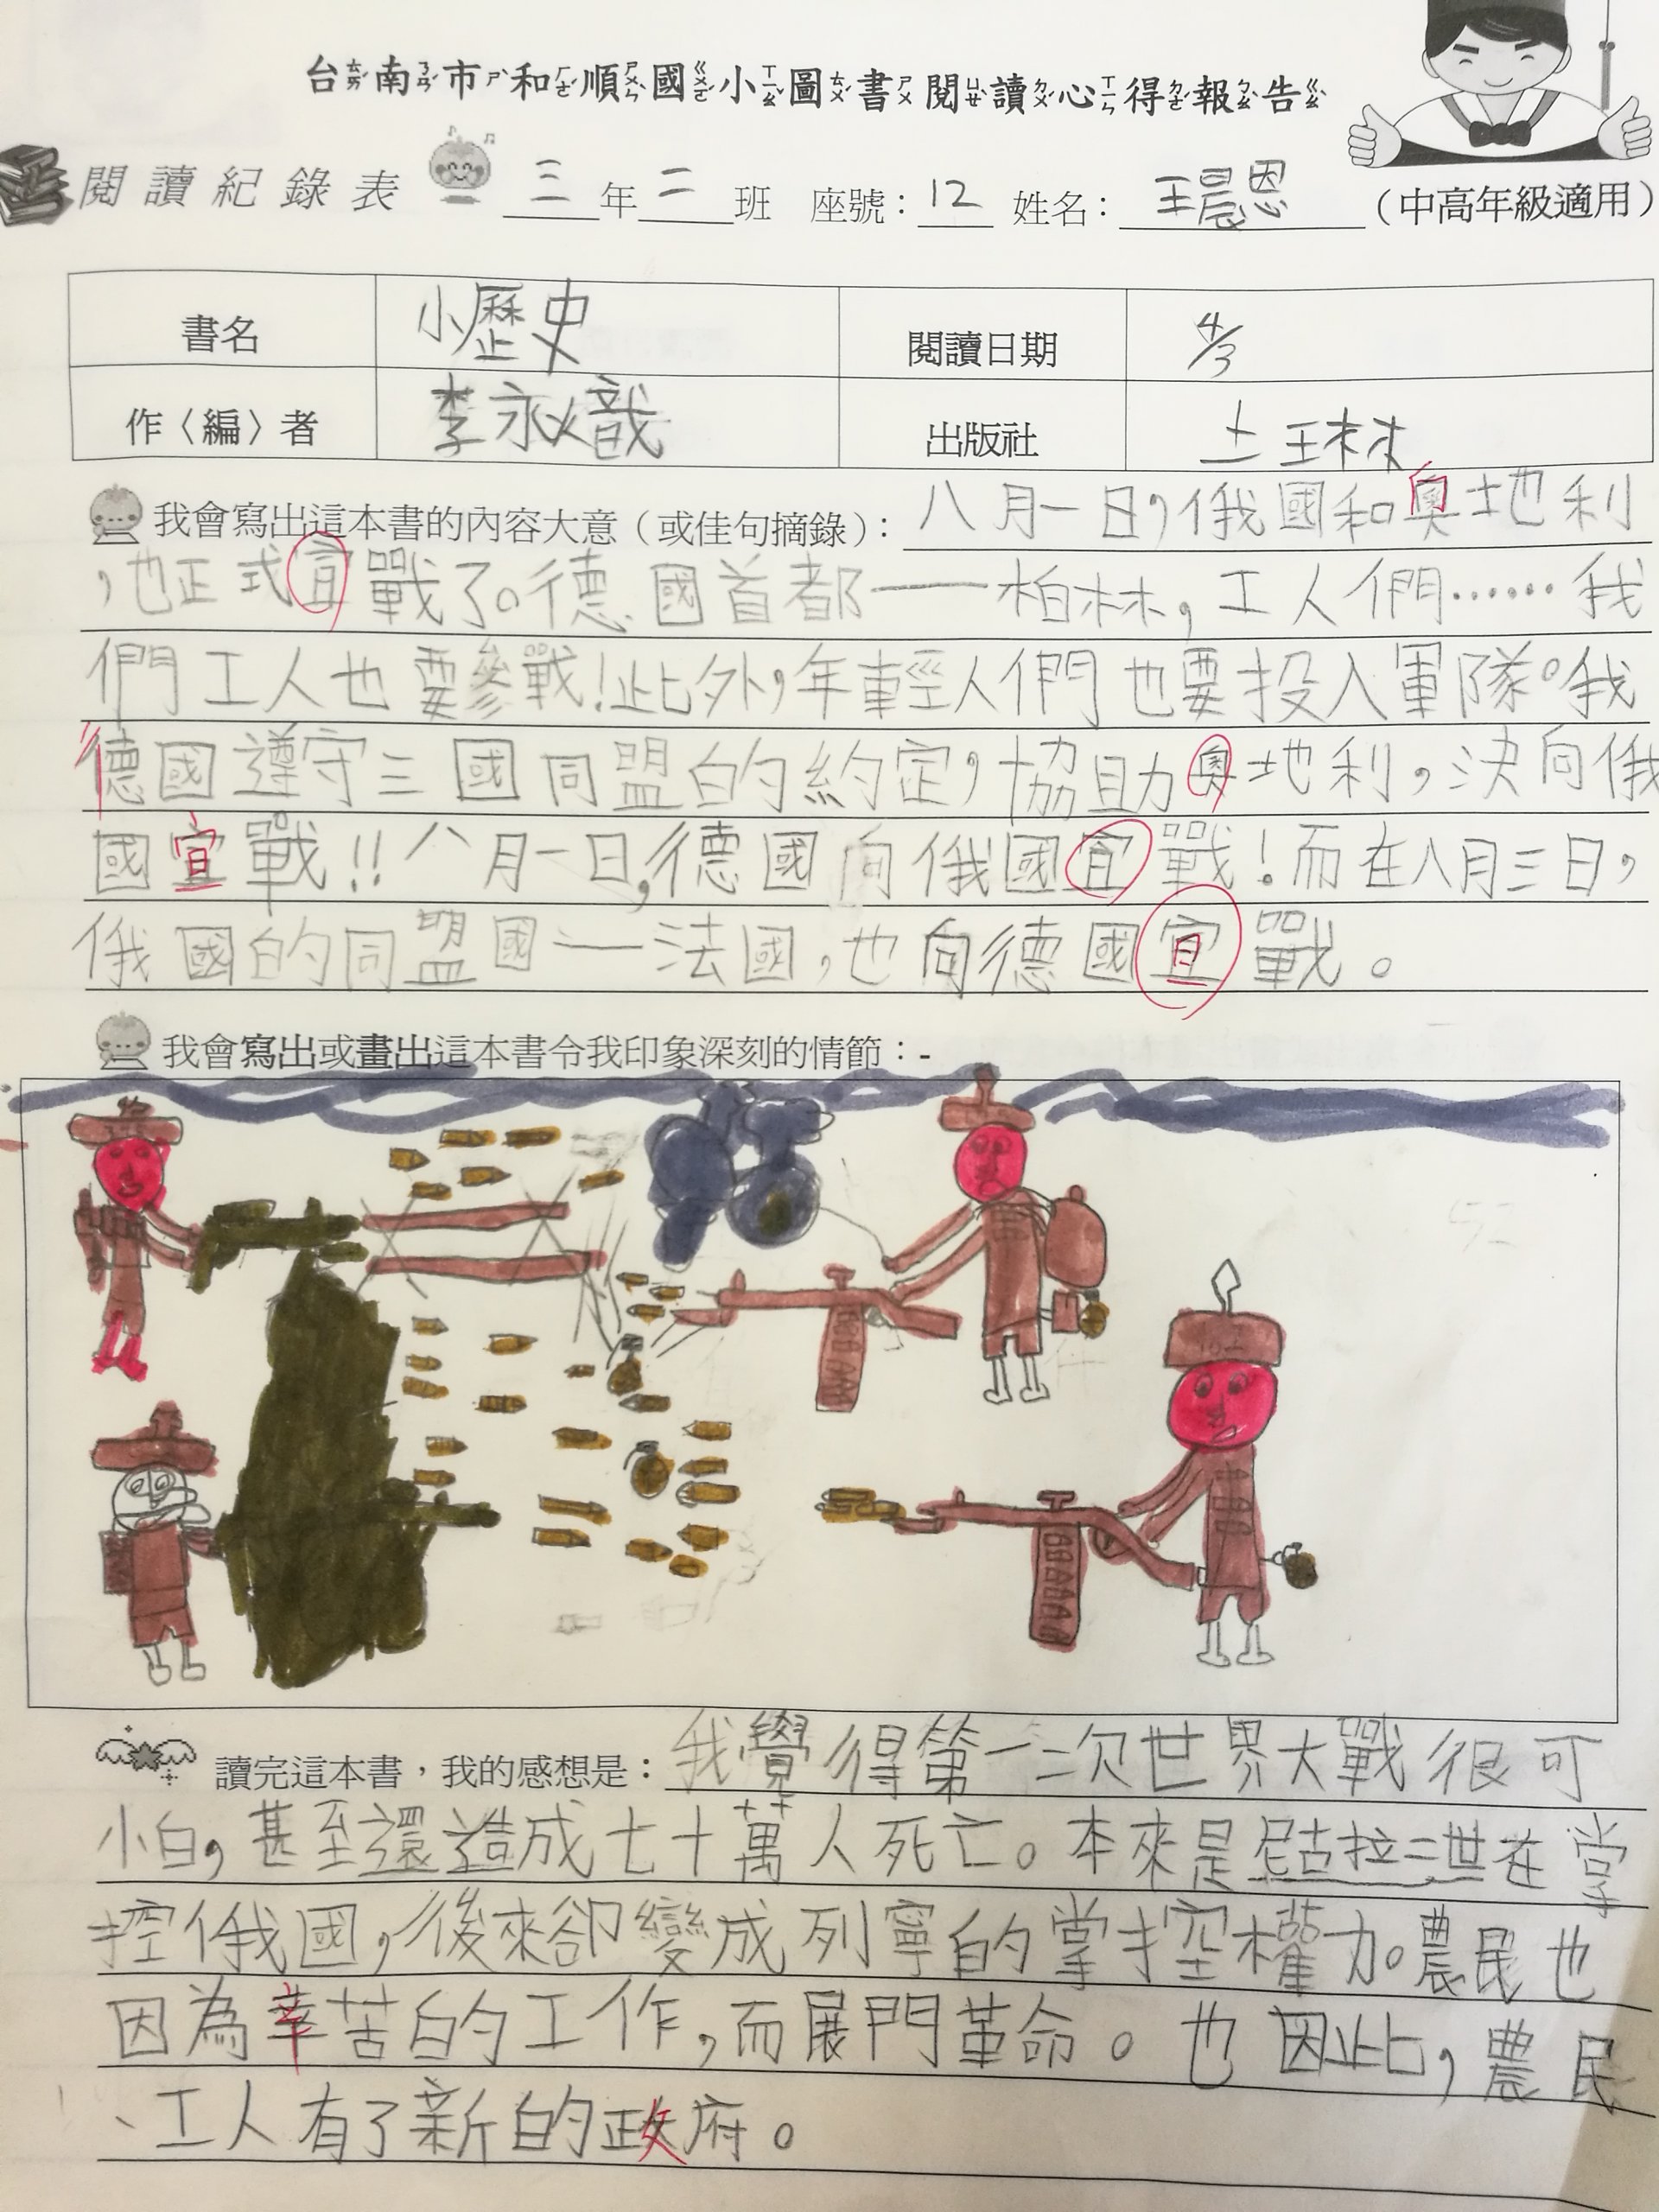 台南市和順國小圖書閱讀心得報告
閱讀紀錄表 三年二班 座號：12 姓名：王晨恩 （中高年級適用）
書名 小歷史 閱讀日期 4/3
作〈編〉者 李永熾 出版社 士 王林
我會寫出這本書的內容大意（或佳句摘錄）：八月一日，俄國和奧地利
，也正式宣戰了。德國首都——柏林，工人們……我
們工人也要參戰！此外，年輕人們也要投入軍隊。我
德國遵守三國同盟的約定，協助奧地利，決向俄
國宣戰！！八月一日，德國向俄國宣戰！而在八月三日，
俄國的同盟國——法國，也向德國宣戰。
我會寫出或畫出這本書令我印象深刻的情節：-
讀完這本書，我的感想是：我覺得第一二次世界大戰很可
小白，甚至還造成七十萬人死亡。本來是尼古拉二世在掌
控俄國，後來卻變成列寧的掌控權力。農民也
因為辛苦的工作，而展開革命。也因此，農民
、工人有了新的政府。